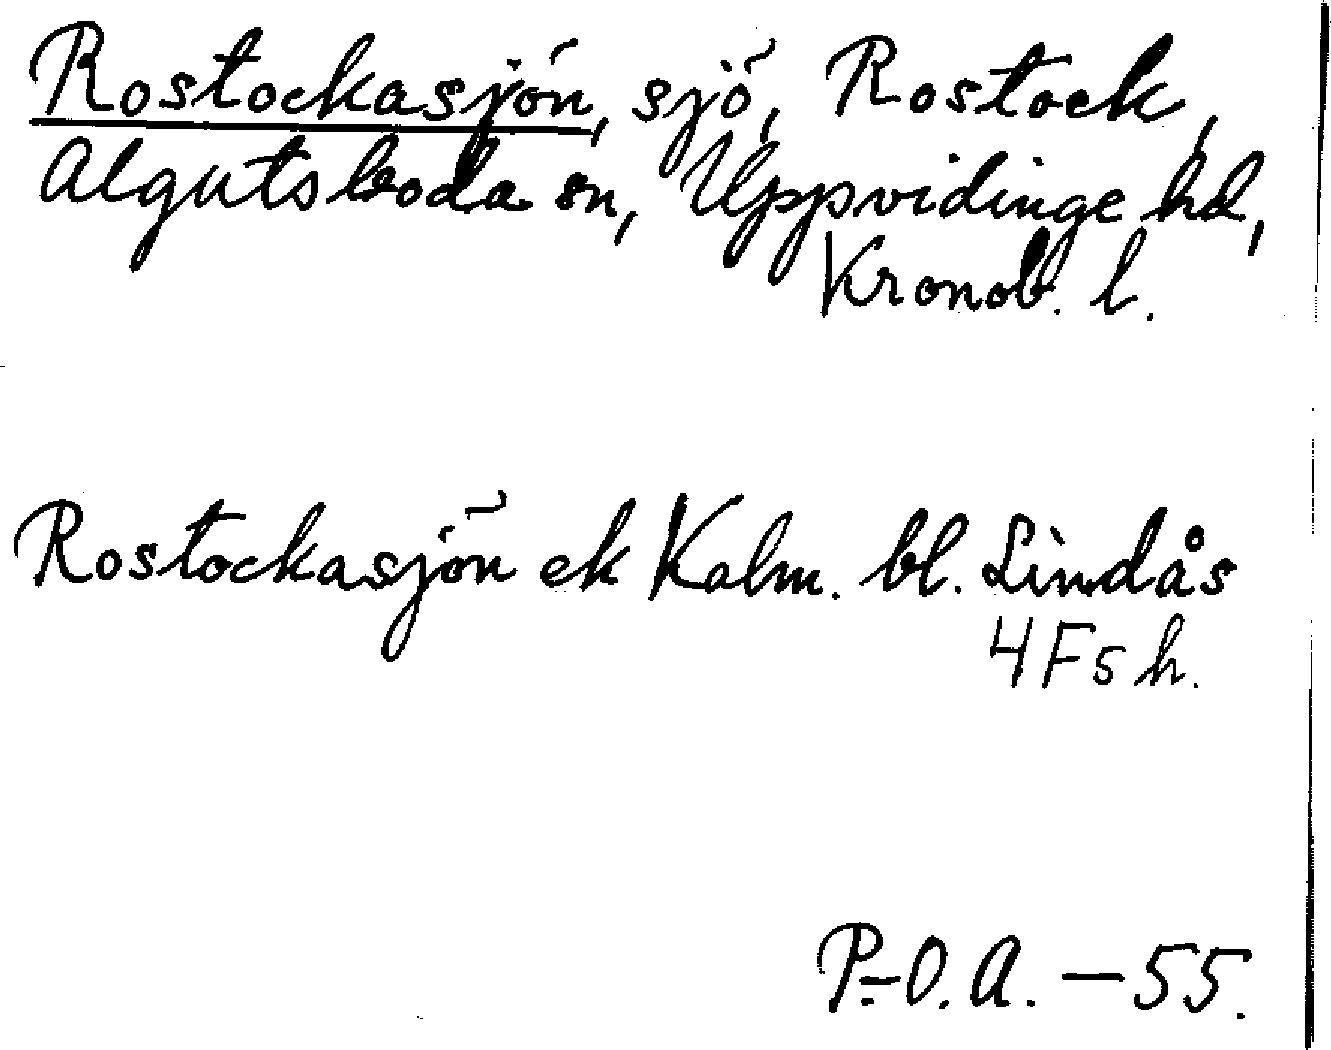 Rostockasjön, sjö, Rostock,
Algutsboda sn, Uppvidinge hd,
Kronob. l.
Rostockasjön ek Kalm. bl. Lindås
4F5h.
P.-O.A. – 55.